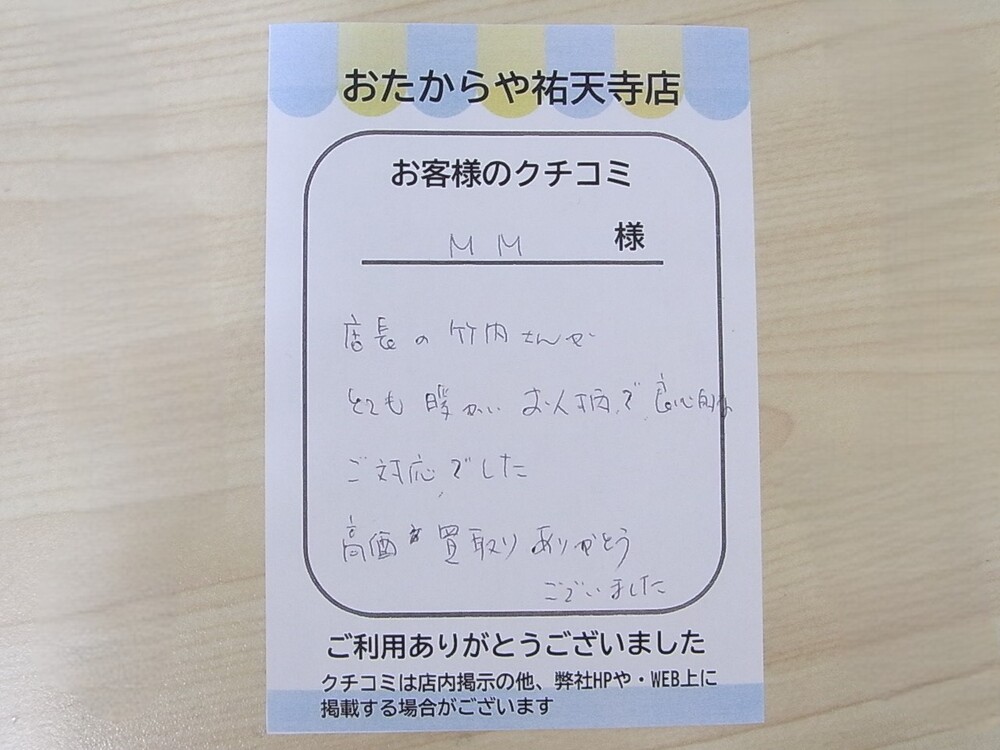 おたからや祐天寺店
お客様のクチコミ
MM 様
店長の竹内さんが
とても暖かいお人柄で、良心的な
ご対応でした
高価な買取りありがとう
ございました
ご利用ありがとうございました
クチコミは店内掲示の他、弊社HPや・WEB上に
掲載する場合がございます